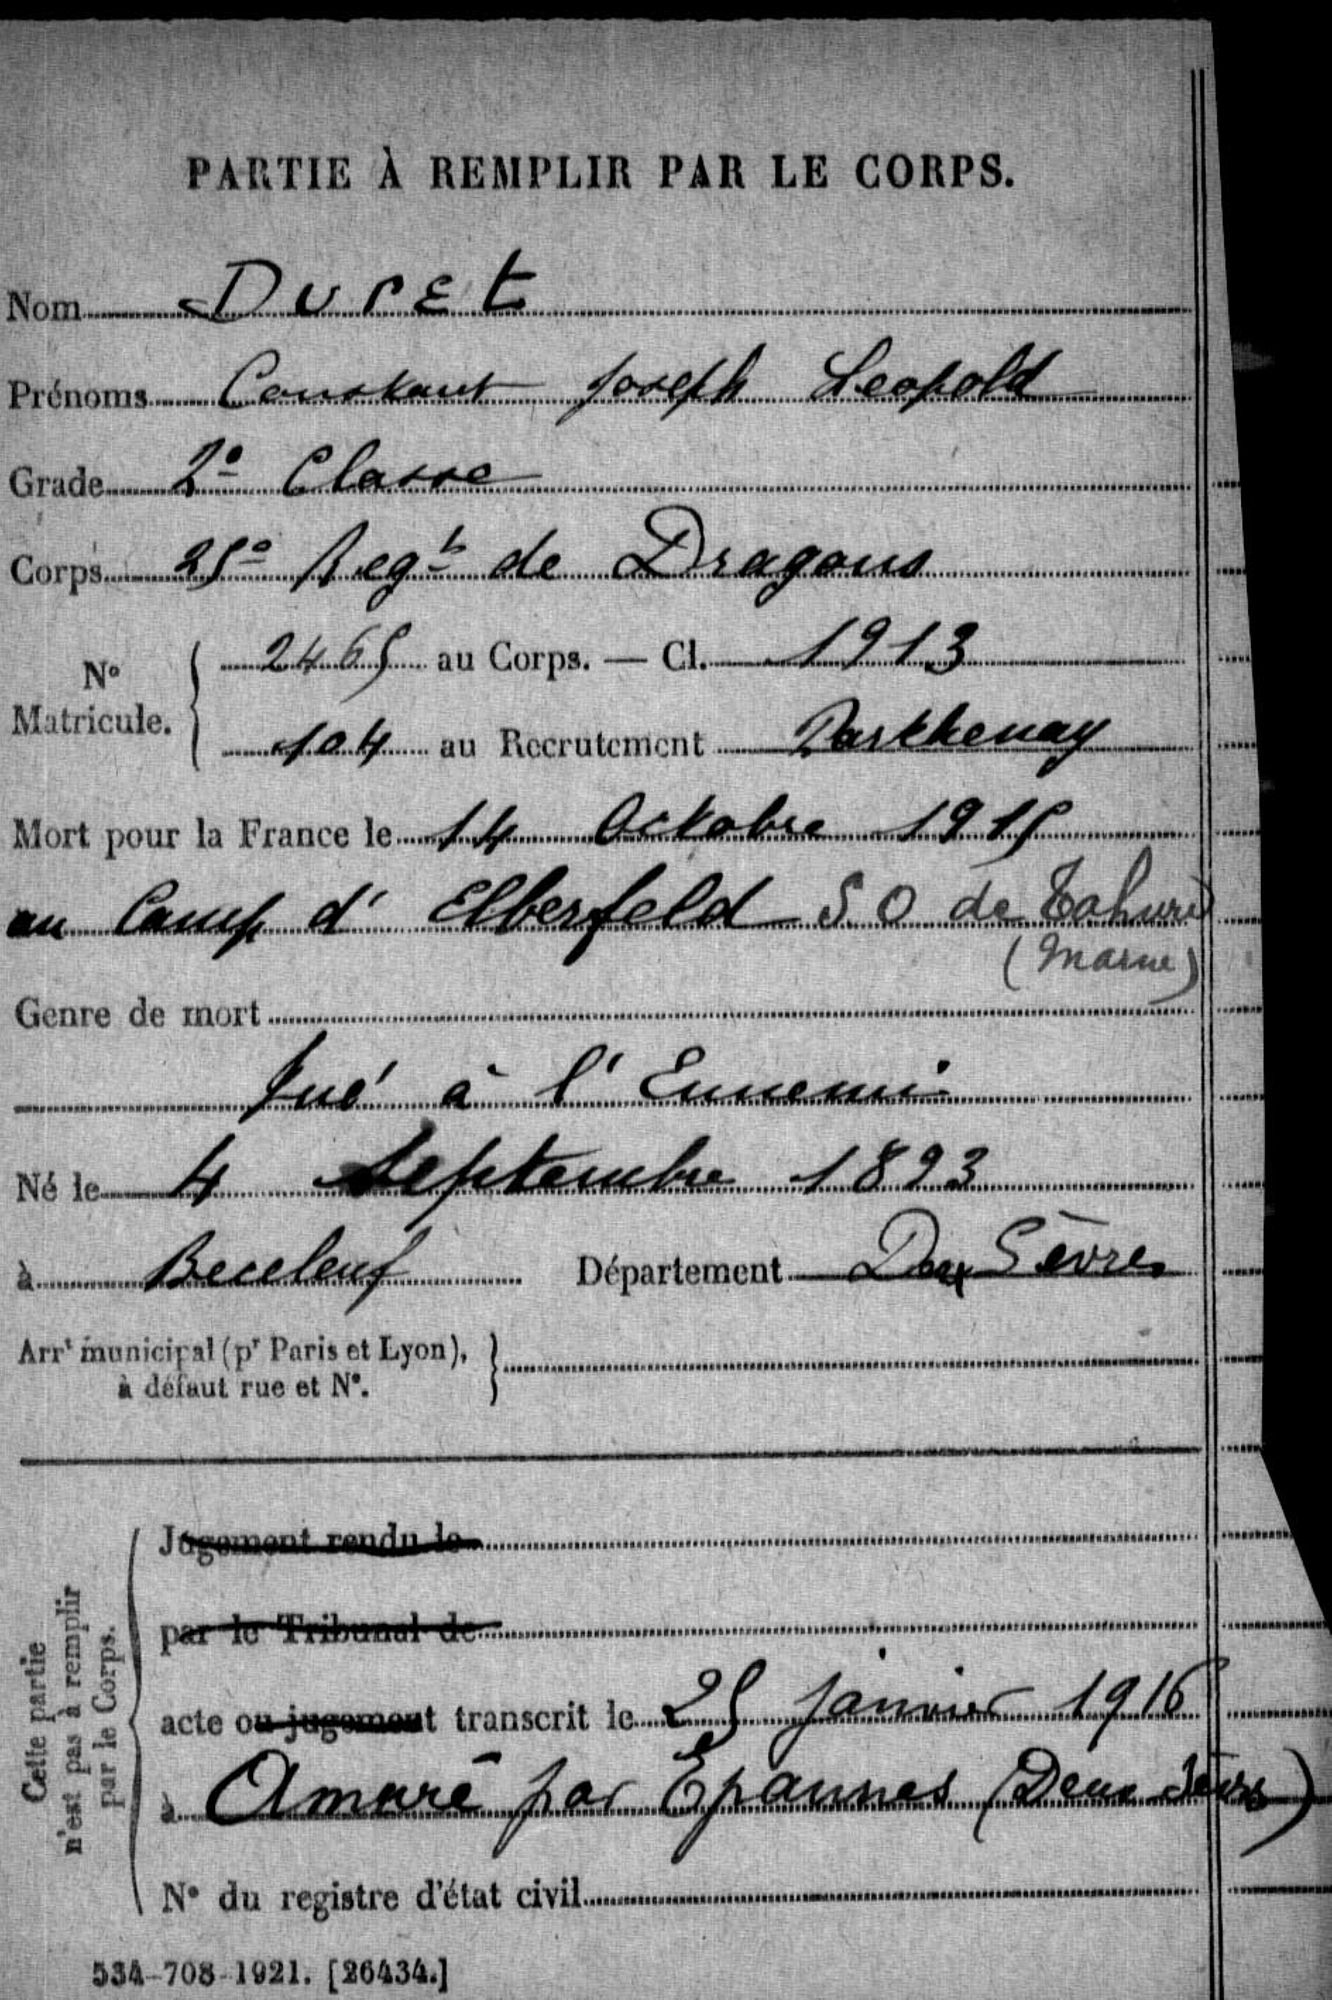 PARTIE À REMPLIR PAR LE CORPS.
Nom Duret
Prénoms Constant Joseph Leopold
Grade 2e Classe
Corps 25e Regt de Dragons
No Matricule. { 2465 au Corps. — Cl. 1913
104 au Recrutement Parthenay
Mort pour la France le 14 Octobre 1915
au Camp d'Elberfeld S O de Tahure
(Marne)
Genre de mort
Tué à l'Ennemi
Né le 4 Septembre 1893
à Beceleuf Département Deux Sèvres
Arrt municipal (pr Paris et Lyon),
à défaut rue et N°.
Cette partie n'est pas à remplir par le Corps.
Jugement rendu le
par le Tribunal de
acte ou jugement transcrit le 25 janvier 1916
à Amuré par Epannes (Deux Sèvres)
N° du registre d'état civil
534-708-1921. [26434.]